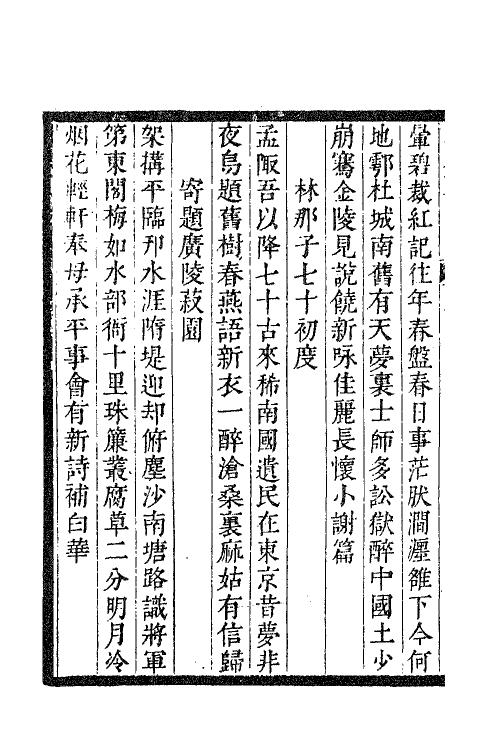 暈碧裁紅記往年春盤春日事茫肰澗瀍雒下今何
地鄠杜城南舊有天夢裏士師多訟獄醉中國土少
崩騫金陵見說饒新咏佳麗長懷小謝篇
林那子七十初度
孟陬吾以降七十古來稀南國遺民在東京昔夢非
夜烏題舊樹春燕語新衣一醉滄桑裏麻姑有信歸
寄題廣陵菽園
架搆平臨邗水涯隋堤迎却俯塵沙南塘路識將軍
第東閣梅如水部衙十里珠簾叢腐草二分明月冷
烟花輕軒奉母承平事會有新詩補白華